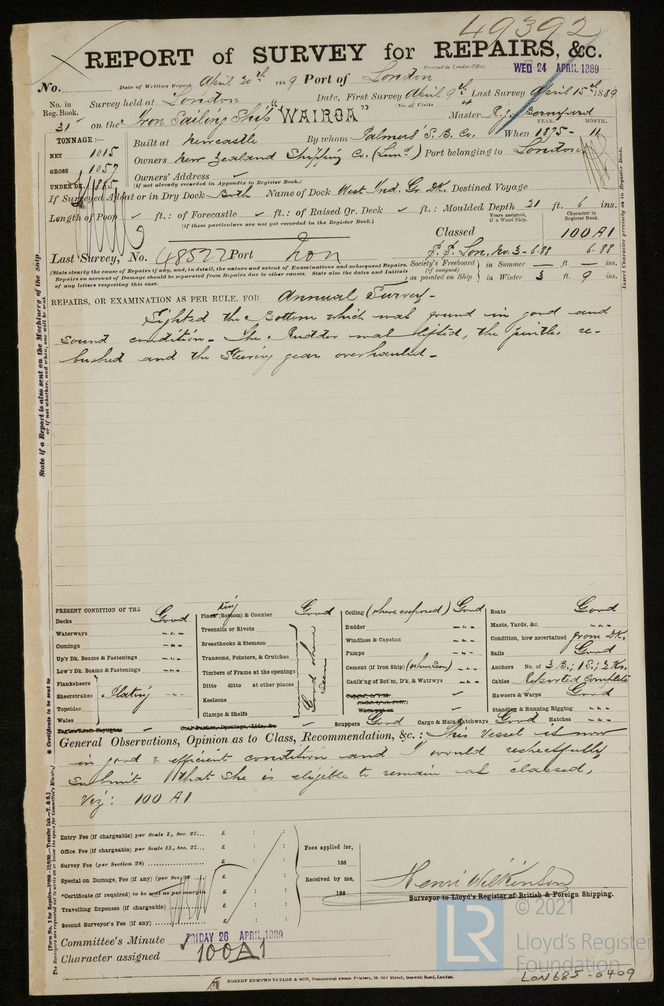 49392
REPORT of SURVEY for REPAIRS, &c.
Received in London Office WED 24 APRIL 1889
No. Date of Writing Report April 20th 1889 Port of London
No. in Reg. Book. Survey held at London Date, First Survey April 9th Last Survey April 15th 1889
(No. of Visits 4
31 on the Iron Sailing Ship "WAIROA" Master
TONNAGE:— Built at Newcastle By whom Palmers' S. B. Co. When 1875 - 11
YEAR. MONTH.
NET 1015
GROSS 1057 Owners New Zealand Shipping Co. (Limd) Port belonging to London
UNDER DK. Owners' Address
(if not already recorded in Appendix to Register Book.)
If Surveyed Afloat or in Dry Dock Both Name of Dock West Ind. Gr. DK. Destined Voyage
Length of Poop ft.: of Forecastle ft.: of Raised Qr. Deck ft.: Moulded Depth 21 ft. 6 ins.
(if these particulars are not yet recorded in the Register Book.)
Years assigned, if a Wood Ship. Character in Register Book.
Classed 100 A1
Last Survey, No. 48522 Port Lon S. S. Lon. No. 3-6.88 6.88
(State clearly the cause of Repairs if any, and, in detail, the nature and extent of Examinations and subsequent Repairs.
Repairs on account of Damage should be separated from Repairs due to other causes. State also the dates and Initials
of any letters respecting this case.
Society's Freeboard (if assigned) as painted on Ship } in Summer — ft. — ins.
in Winter 3 ft. 9 ins.
Insert Character precisely as in Register Book.
State if a Report is also sent on the Machinery of the Ship
REPAIRS, OR EXAMINATION AS PER RULE, FOR Annual Survey -
Sighted the Bottom which was found in good and
sound condition - The Rudder was lifted, the pintles re-
bushed and the Steering gear overhauled -
PRESENT CONDITION OF THE
Decks Good
Waterways
Comings
Up'r Dk. Beams & Fastenings
Low'r Dk. Beams & Fastenings
Planksheers
Sheerstrakes
Topsides
Wales
Plating
Plank (Bottom) & Counter Good
Treenails or Rivets
Breasthooks & Stemson
Transoms, Pointers, & Crutches
Timbers of Frame at the openings
Ditto ditto at other places
Keelsons
Clamps & Shelfs
Good where seen
Ceiling (where exposed) Good
Rudder
Windlass & Capstan
Pumps
Cement (if Iron Ship) (where seen)
Caulk'ng of Bot'm, D'k, & Wat'rwys
Scuppers Good Cargo & Main Hatchways Good Hatches
Boats Good
Masts, Yards, &c.
Condition, how ascertained from DK.
Sails Good
Anchors No. of 3 B.; 1 S.; 2 Ks.
Cables Reported Complete
Hawsers & Warps Good
Standing & Running Rigging
General Observations, Opinion as to Class, Recommendation, &c.: This Vessel is now
in good & efficient condition and I would respectfully
submit that she is eligible to remain as classed,
Viz: 100 A1
Entry Fee (if chargeable) per Scale I., Sec. 27... £ : :
Office Fee (if chargeable) per Scale II., Sec. 27... £ : :
Survey Fee (per Section 28) £ : :
Special on Damage, Fee (if any) (per Sec. 28 £ : :
*Certificate (if required) to be sent as per margin
Travelling Expenses (if chargeable) £ : :
Second Surveyor's Fee (if any) £ : :
Fees applied for,
188
Received by me,
188
Henri Wilkinson
Surveyor to Lloyd's Register of British & Foreign Shipping.
Committee's Minute FRIDAY 26 APRIL 1889
Character assigned 100A1
ROBERT EDMUND TAYLOR & SON, Commercial Steam Printers, 19, Old Street, Goswell Road, London.
LR
© 2021
Lloyd's Register
Foundation
LON 685-0409